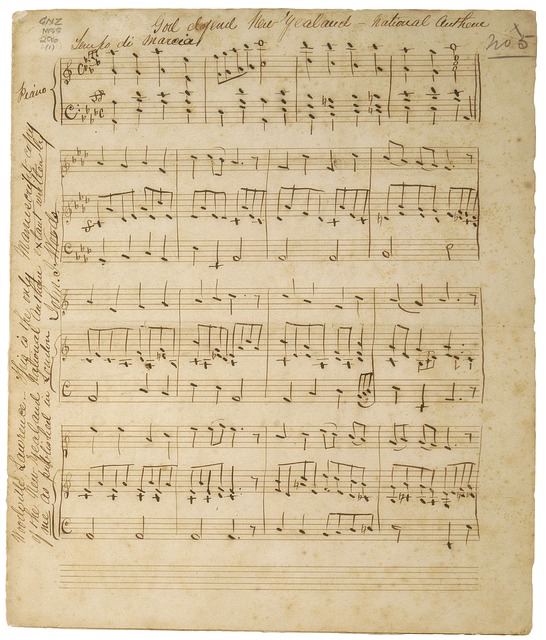 GNZ
MSS
2010
(1)
God defend New Zealand – National Anthem
Tempo di Marcia
No. 5
Piano
Woodville Lawrence – This is the only manuscript copy
of the New Zealand National Anthem extant written by
me as published in London John J. Woods